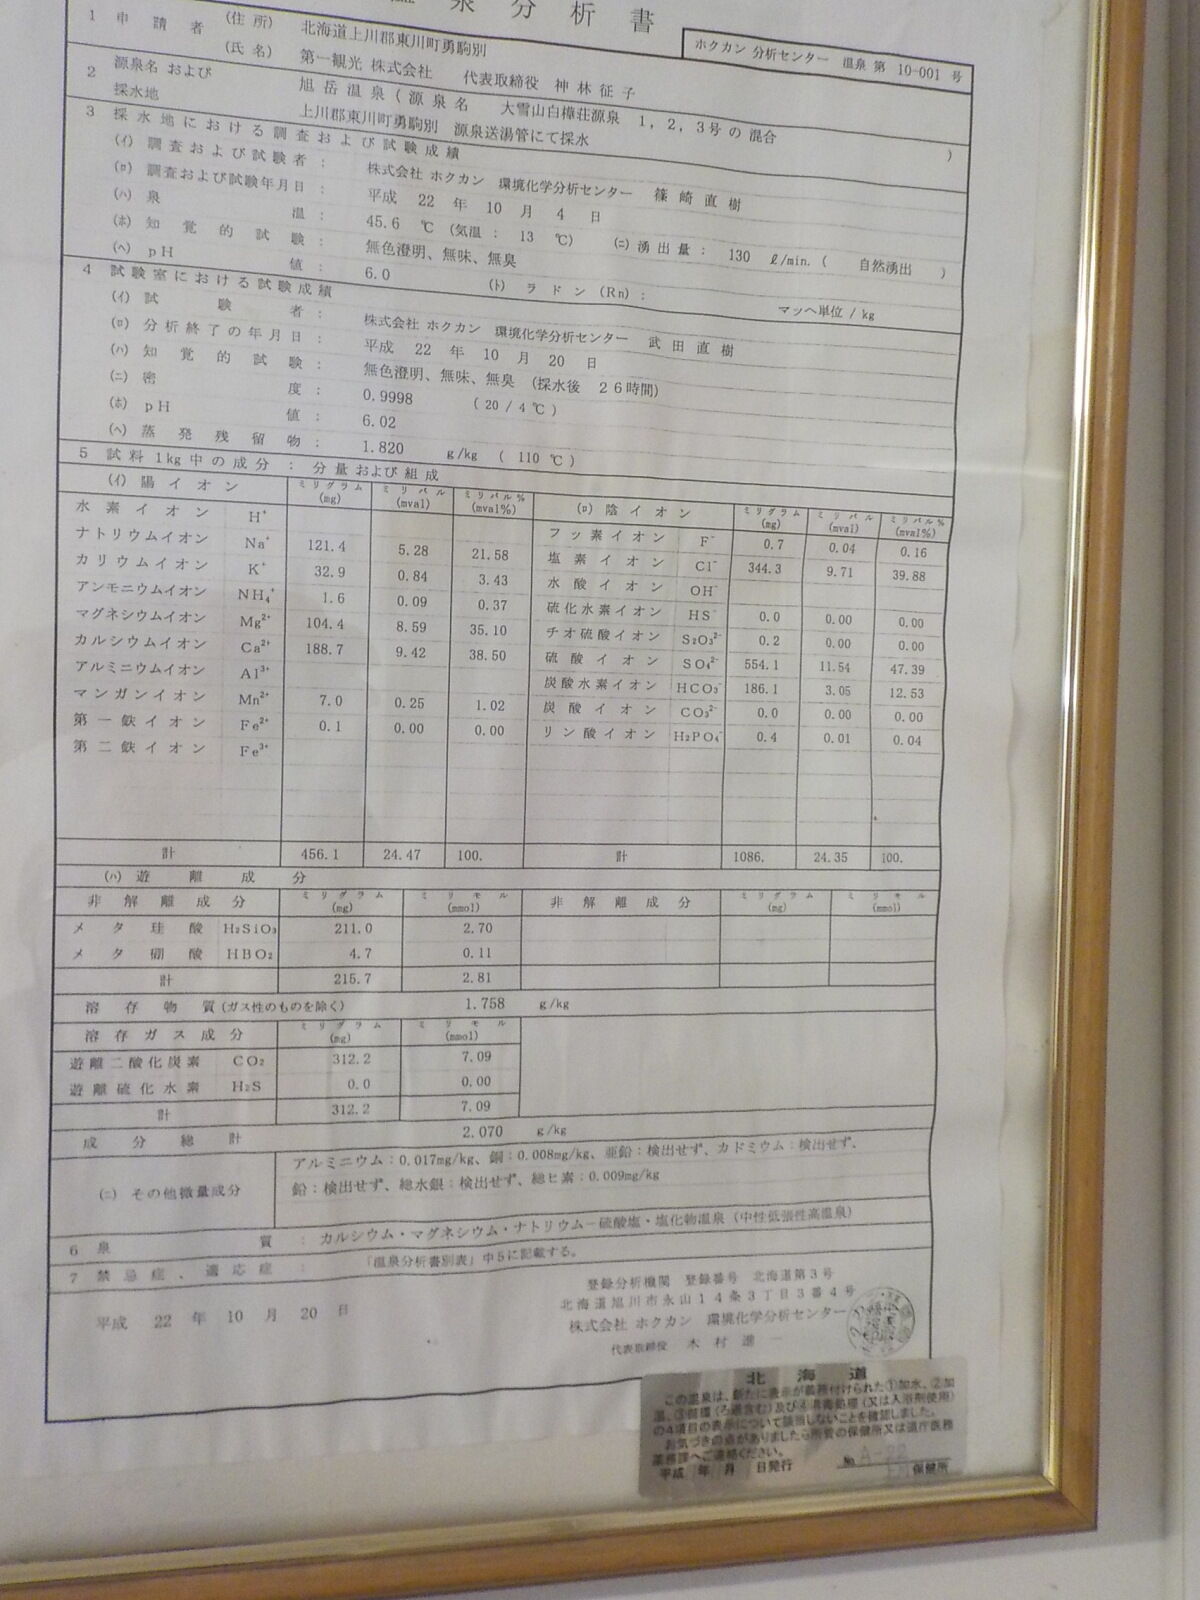 泉 分 析 書
ホクカン 分析センター 温泉 第 10-001 号
1 申 請 者 (住 所) 北海道上川郡東川町勇駒別
(氏 名) 第一観光 株式会社 代表取締役 神 林 征 子
2 源泉名 および 旭 岳 温 泉 ( 源 泉 名 大雪山白樺荘源泉 1，2，3号 の 混合 )
採水地 上川郡東川町勇駒別 源泉送湯管にて採水
3 採 水 地 に お け る 調 査 お よ び 試 験 成 績
(イ) 調 査 お よ び 試 験 者 ： 株式会社 ホクカン 環境化学分析センター 篠 崎 直 樹
(ロ) 調査および試験年月日 ： 平成 22 年 10 月 4 日
(ハ) 泉 温 ： 45.6 ℃ (気温 ： 13 ℃) (ニ) 湧 出 量 ： 130 ℓ/min. ( 自然湧出 )
(ホ) 知 覚 的 試 験 ： 無色澄明、無味、無臭
(ヘ) pH 値 ： 6.0 (ト) ラ ド ン (Rn) ： マッヘ単位 / kg
4 試 験 室 に お け る 試 験 成 績
(イ) 試 験 者 ： 株式会社 ホクカン 環境化学分析センター 武 田 直 樹
(ロ) 分 析 終 了 の 年 月 日 ： 平成 22 年 10 月 20 日
(ハ) 知 覚 的 試 験 ： 無色澄明、無味、無臭 (採水後 26時間)
(ニ) 密 度 ： 0.9998 ( 20 / 4 ℃ )
(ホ) pH 値 ： 6.02
(ヘ) 蒸 発 残 留 物 ： 1.820 g/kg ( 110 ℃ )
5 試 料 1kg 中 の 成 分 ： 分 量 お よ び 組 成
(イ) 陽 イ オ ン ミリグラム (mg) ミリバル (mval) ミリバル% (mval%) (ロ) 陰 イ オ ン ミリグラム (mg) ミリバル (mval) ミリバル% (mval%)
水 素 イ オ ン H⁺ フ ッ 素 イ オ ン F⁻ 0.7 0.04 0.16
ナトリウムイオン Na⁺ 121.4 5.28 21.58 塩 素 イ オ ン Cl⁻ 344.3 9.71 39.88
カ リ ウ ム イ オ ン K⁺ 32.9 0.84 3.43 水 酸 イ オ ン OH⁻
アンモニウムイオン NH₄⁺ 1.6 0.09 0.37 硫化水素イオン HS⁻ 0.0 0.00 0.00
マグネシウムイオン Mg²⁺ 104.4 8.59 35.10 チオ硫酸イオン S₂O₃²⁻ 0.2 0.00 0.00
カルシウムイオン Ca²⁺ 188.7 9.42 38.50 硫 酸 イ オ ン SO₄²⁻ 554.1 11.54 47.39
アルミニウムイオン Al³⁺ 炭酸水素イオン HCO₃⁻ 186.1 3.05 12.53
マンガンイオン Mn²⁺ 7.0 0.25 1.02 炭 酸 イ オ ン CO₃²⁻ 0.0 0.00 0.00
第 一 鉄 イ オ ン Fe²⁺ 0.1 0.00 0.00 リ ン 酸 イ オ ン H₂PO₄⁻ 0.4 0.01 0.04
第 二 鉄 イ オ ン Fe³⁺
計 456.1 24.47 100. 計 1086. 24.35 100.
(ハ) 遊 離 成 分
非 解 離 成 分 ミリグラム (mg) ミリモル (mmol) 非 解 離 成 分 ミリグラム (mg) ミリモル (mmol)
メ タ 珪 酸 H₂SiO₃ 211.0 2.70
メ タ 硼 酸 HBO₂ 4.7 0.11
計 215.7 2.81
溶 存 物 質 (ガス性のものを除く) 1.758 g/kg
溶 存 ガ ス 成 分 ミリグラム (mg) ミリモル (mmol)
遊離二酸化炭素 CO₂ 312.2 7.09
遊 離 硫 化 水 素 H₂S 0.0 0.00
計 312.2 7.09
成 分 総 計 2.070 g/kg
(ニ) その他微量成分 アルミニウム：0.017mg/kg、銅：0.008mg/kg、亜鉛：検出せず、カドミウム：検出せず、
鉛：検出せず、総水銀：検出せず、総ヒ素：0.009mg/kg
6 泉 質 ： カルシウム・マグネシウム・ナトリウム－硫酸塩・塩化物温泉 (中性低張性高温泉)
7 禁 忌 症 、 適 応 症 ： 「温泉分析書別表」中5に記載する。
登録分析機関 登録番号 北海道第3号
北海道旭川市永山14条3丁目3番4号
平成 22 年 10 月 20 日 株式会社 ホクカン 環境化学分析センター
代表取締役 木 村 進 一
北 海 道
この温泉は、新たに表示が義務付けられた①加水、②加
温、③循環(ろ過含む)及び④消毒処理(又は入浴剤使用)
の4項目の表示について該当しないことを確認しました。
お気づきの点がありましたら所管の保健所又は道庁医務
薬務課へご連絡ください。
平成 年 月 日発行 No. 保健所